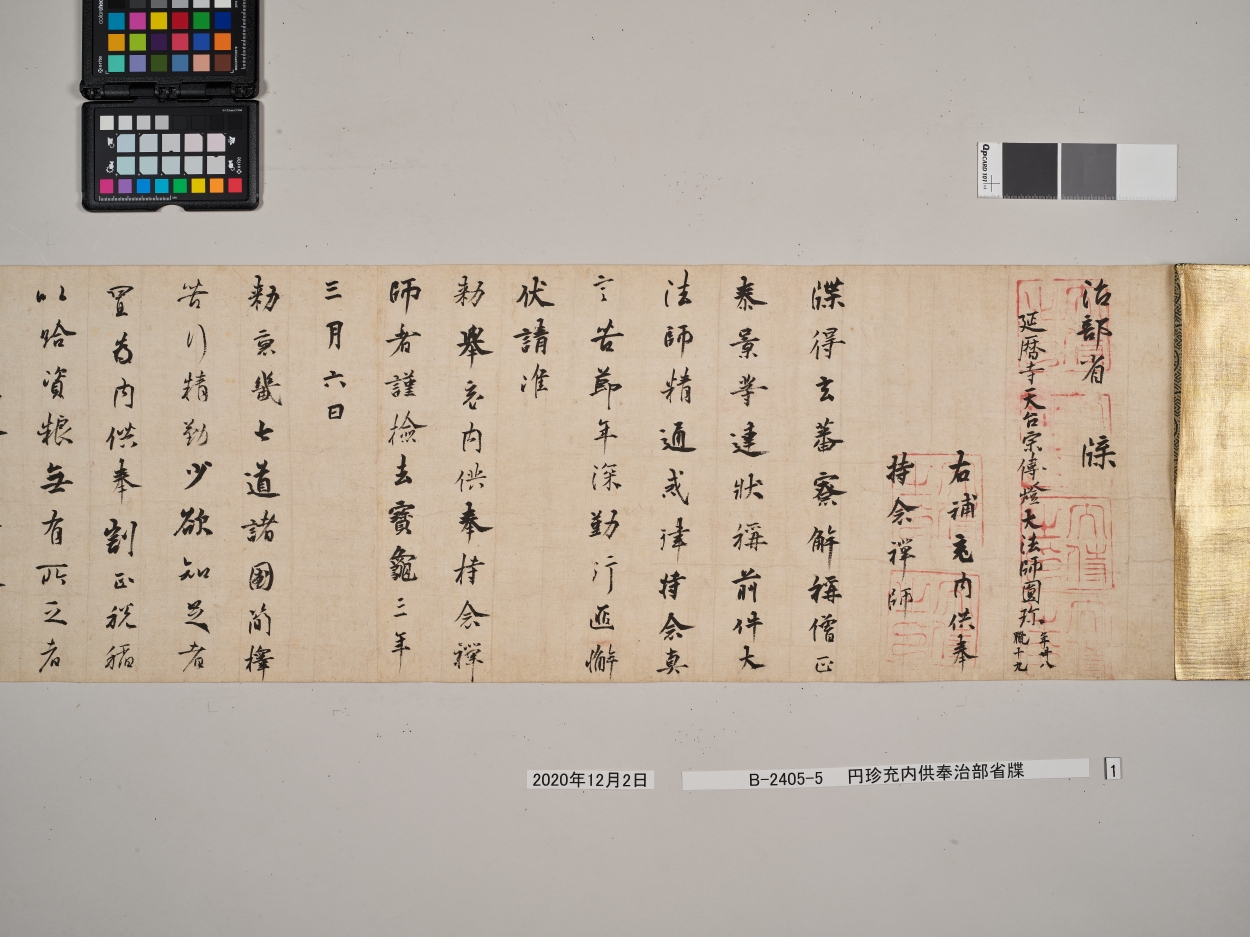 治部省 牒
延曆寺天台宗傳燈大法師圓珎 年卅八 臈十九
右補充內供奉
持念禪師
牒得玄蕃寮解稱僧正
泰景等連狀稱前件大
法師精通戒律持念真
言苦節年深勤行匪懈
伏請准
勑舉充內供奉持念禪
師者謹撿去寶龜三年
三月六日
勑京畿七道諸國簡擇
苦行精勤少欲知足者
置為內供奉割正稅稻
以給資粮無有所乏者
2020年12月2日
B-2405-5 円珍充内供奉治部省牒
1
QPCARD 101